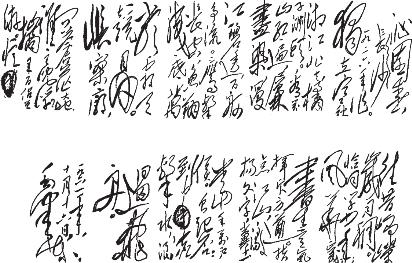 沁园春
长沙
独立寒秋
湘江北去橘
子洲头看万
山红遍层林
尽染漫
江碧透百舸
争流鹰击
长空鱼翔
浅底万
类霜天
竞自由
怅寥廓
问苍茫大地
谁主沉浮
携来百侣
曾游忆
往昔峥嵘
岁月稠
恰同学少年
风华正茂
书生意气
挥斥方遒指
点江山激
扬文字粪土
当年万户
侯曾记否
到中流
击水浪
遏飞
舟
十月十六日
毛泽东